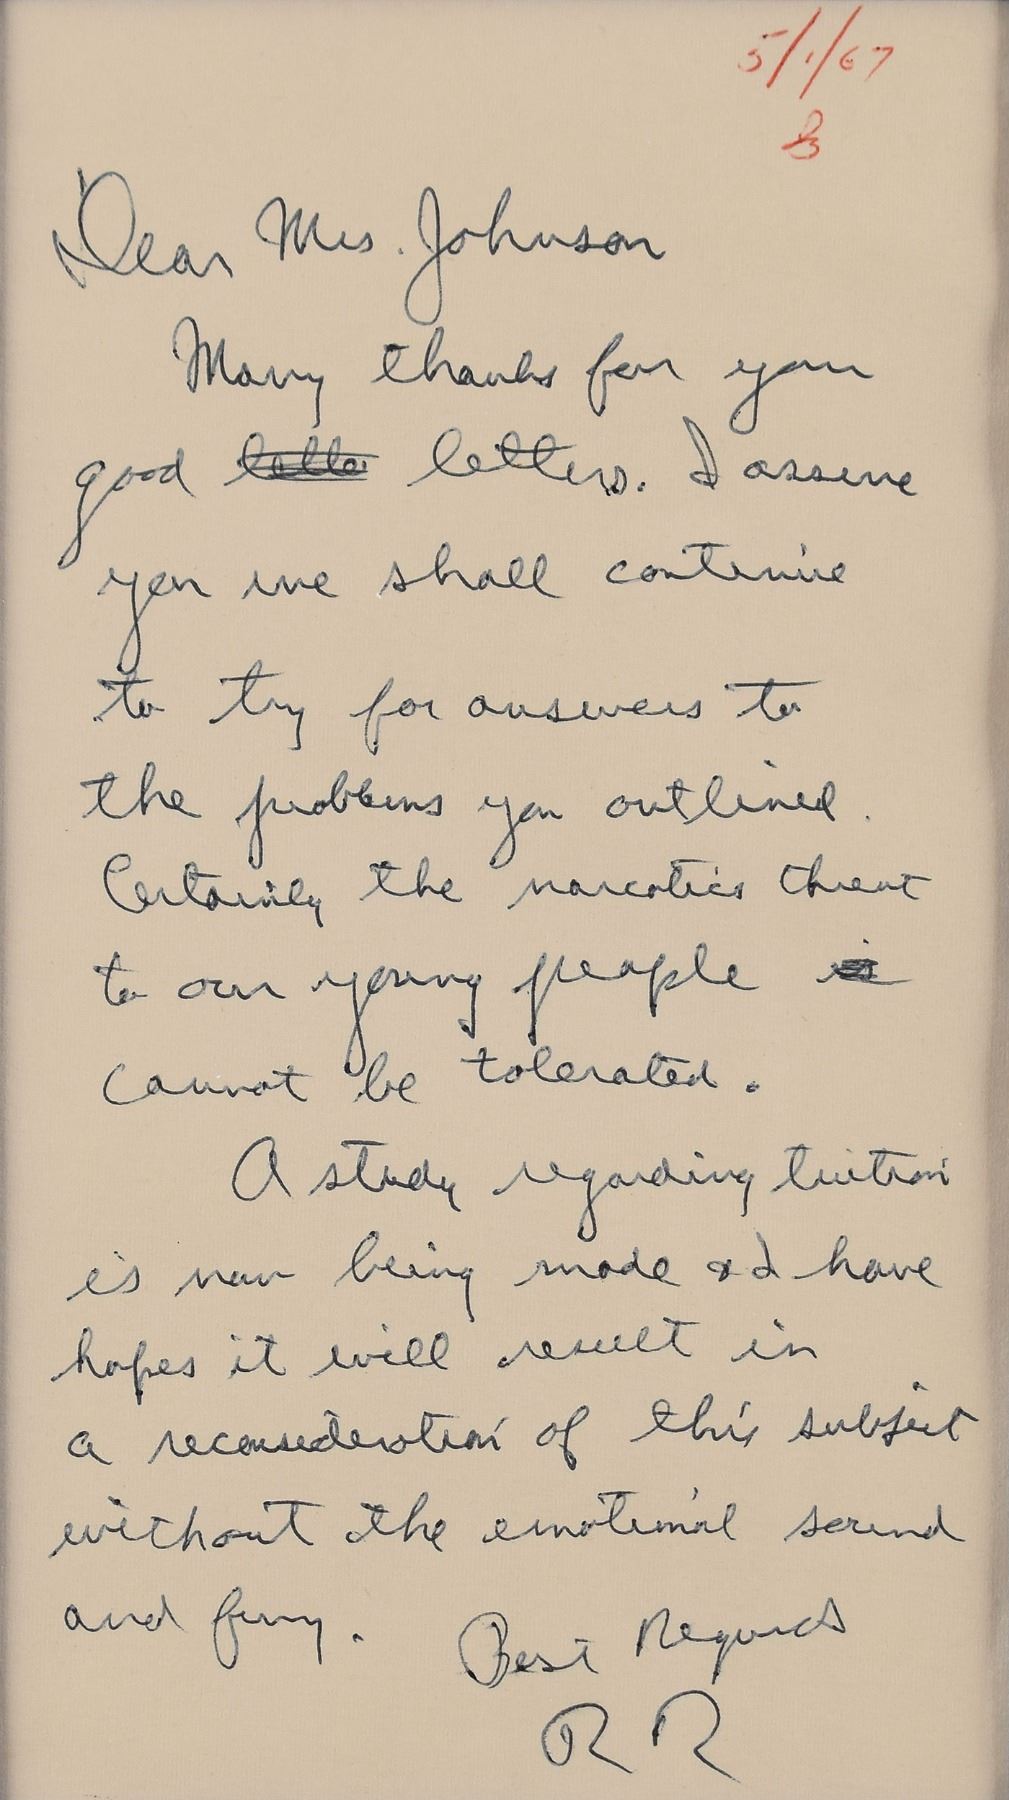 5/1/67
B
Dear Mrs. Johnson
Many thanks for your
good letter letters. I assure
you we shall continue
to try for answers to
the problems you outlined.
Certainly the narcotics threat
to our young people is
cannot be tolerated.
A study regarding tuition
is now being made & I have
hopes it will result in
a reconsideration of this subject
without the emotional sound
and fury.
Best Regards
RR